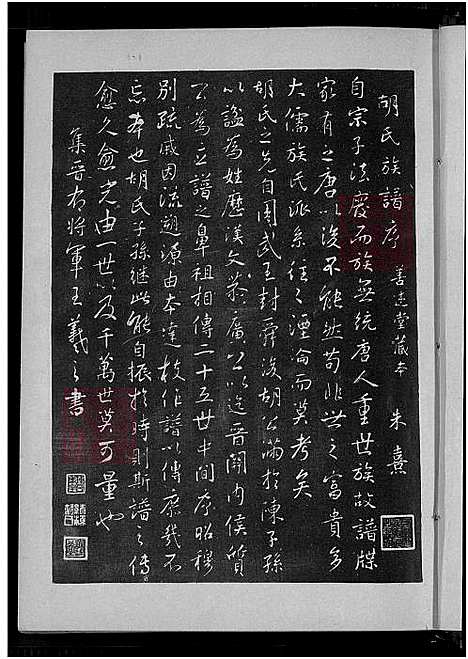 胡氏族譜序 善述堂藏本 朱熹
自宗子法廢而族無統唐人重世族故譜牒
家有之唐以後不能然苟非世之富貴多
大儒族氏派系往往湮淪而莫考矣
胡氏之先自周武王封舜後胡公滿於陳子孫
以謚為姓歷漢文恭廣公以迄晉關內侯質
公為立譜之鼻祖相傳二十五世中間序昭穆
別疏戚因流溯源由本達枝作譜以傳庶幾不
忘本也胡氏子孫繼此能自振於時則斯譜之傳
愈久愈光由一世以及千萬世莫可量也
集晉右將軍王羲之書